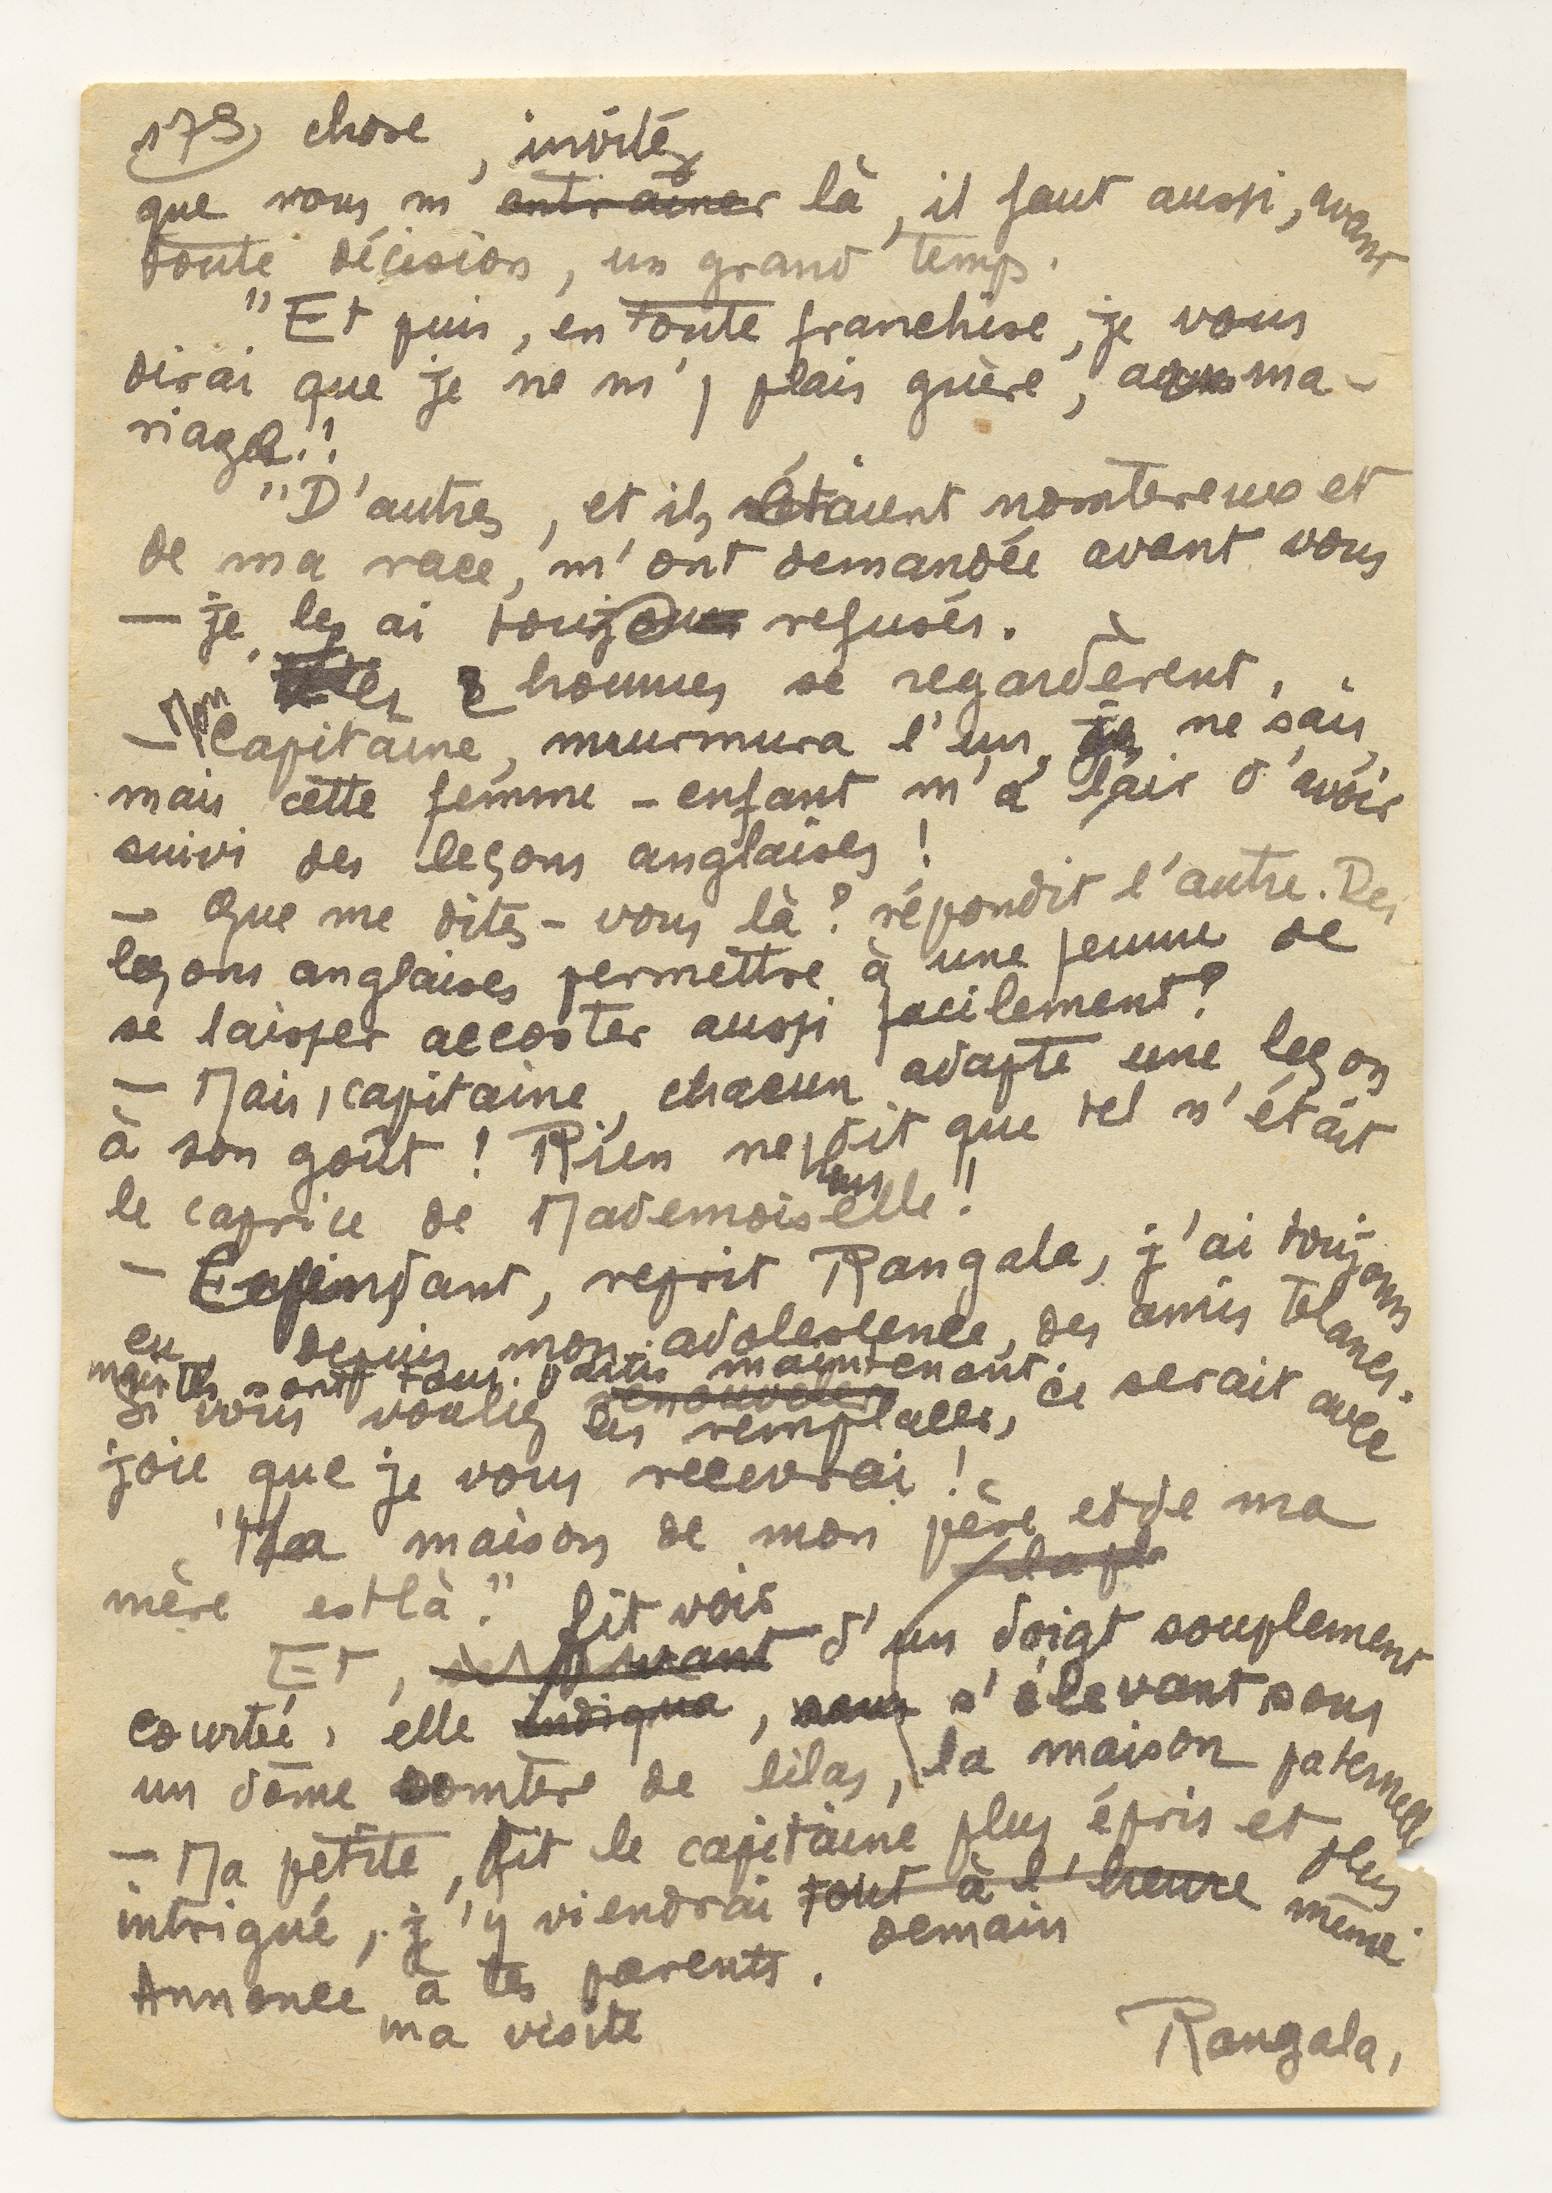 179 chose, invitez
que vous m'entraîner là, il faut aussi, avant
toute décision, un grand temps.
"Et puis, en toute franchise, je vous
dirai que je ne m'y plais guère, au ma-
riage!
"D'autres, et ils étaient nombreux et
de ma race, m'ont demandée avant vous
— je les ai toujours refusés.
Les 2 hommes se regardèrent.
— Mon Capitaine, murmura l'un, je ne sais,
mais cette femme-enfant m'a l'air d'avoir
suivi des leçons anglaises !
— Que me dites-vous là ? répondit l'autre. Des
leçons anglaises permettre à une femme de
se laisser accoster aussi facilement ?
— Mais, capitaine, chacun adapte une leçon
à son goût ! Rien ne dit que tel n'était
pas
le caprice de Mademoiselle !
— Cependant, reprit Rangala, j'ai toujours
eu, depuis mon adolescence, des amis blancs.
mais ils sont tous partis maintenant
renouveler
Si vous vouliez les remplacer, ce serait avec
joie que je vous recevrai !
"La maison de mon père et de ma
mère est là."
fit voir
Et, d'un doigt souplement
courbé, elle indiqua, s'élevant sous
un dôme sombre de lilas, la maison paternelle
— Ma petite, fit le capitaine plus épris et plus
intrigué, j'y viendrai tout à l'heure même
demain
Annonce à tes parents.
ma visite
Rangala,